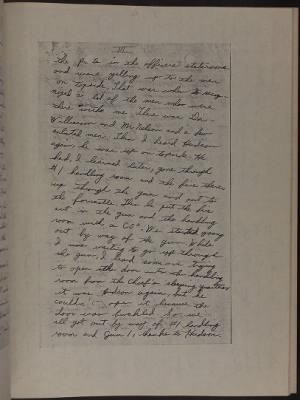 III
the p.a. in the officers stateroom
and were yelling up to the men
on topside. That was when I recog-
nized a lot of the men who were
there with me. There was Don
Williamson and Mr. Nelson and a few
enlisted men. Then I heard Hudson
again, he was up on topside. He
had, I learned later, gone through
#1 handling room and the fire there
up through the gun and out to
the forecastle. Then he put the fire
out in the gun and the handling
room with a CO². We started going
out by way of the gun. While
I was waiting to go up through
the gun, I heard someone trying
to open the door into the handling
room from the Chief's sleeping quarters
it was Hudson again, but he
couldn't open it because the
door was buckled. So we
all got out by way of #1 handling
room and Gun 1, thanks to Hudson.